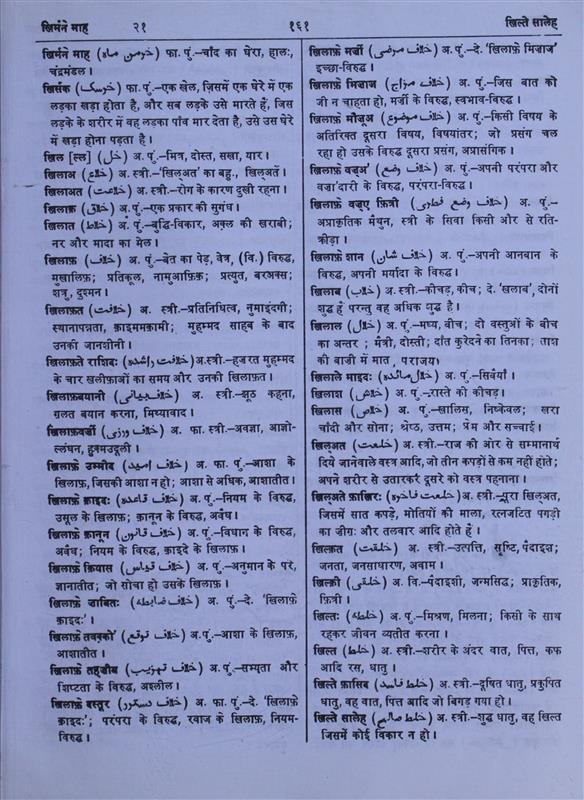 ख़िर्मने माह २१ १६१ ख़िल्ते सालेह
ख़िर्मने माह (خرمن ماه) फा. पुं.–चाँद का घेरा, हालः,
चंद्रमंडल।
ख़िर्सक (خرسک) फा. पुं.–एक खेल, जिसमें एक घेरे में एक
लड़का खड़ा होता है, और सब लड़के उसे मारते हैं, जिस
लड़के के शरीर में वह लड़का पाँव मार देता है, उसे उस घेरे
में खड़ा होना पड़ता है।
ख़िल [ल्ल] (خل) अ. पुं.–मित्र, दोस्त, सखा, यार।
ख़िलाअ (خلاع) अ. स्त्री.–'ख़िल्अत' का बहु., ख़िल्अतें।
ख़िलाअत (خلاعت) अ. स्त्री.–रोग के कारण दुखी रहना।
ख़िलाक़ (خلاق) अ. पुं.–एक प्रकार की सुगंध।
ख़िलात (خلاط) अ. पुं.–बुद्धि-विकार, अक़्ल की ख़राबी;
नर और मादा का मेल।
ख़िलाफ़ (خلاف) अ. पुं.–बेत का पेड़, वेत्र, (वि.) विरुद्ध,
मुख़ालिफ़; प्रतिकूल, नामुआफ़िक़; प्रत्युत, बरअक्स;
शत्रु, दुश्मन।
ख़िलाफ़त (خلافت) अ. स्त्री.–प्रतिनिधित्व, नुमाइंदगी;
स्थानापन्नता, क़ाइममक़ामी; मुहम्मद साहब के बाद
उनकी जानशीनी।
ख़िलाफ़ते राशिदः (خلافت راشده) अ. स्त्री.–हज़रत मुहम्मद
के चार ख़लीफ़ाओं का समय और उनकी ख़िलाफ़त।
ख़िलाफ़बयानी (خلاف بیانی) अ. स्त्री.–झूठ कहना,
ग़लत बयान करना, मिथ्यावाद।
ख़िलाफ़वर्ज़ी (خلاف ورزی) अ. फा. स्त्री.–अवज्ञा, आज्ञो-
ल्लंघन, हुक्मउदूली।
ख़िलाफ़े उम्मीद (خلاف امید) अ. फा. पुं.–आशा के
ख़िलाफ़, जिसकी आशा न हो; आशा से अधिक, आशातीत।
ख़िलाफ़े क़ाइदः (خلاف قاعده) अ. पुं.–नियम के विरुद्ध,
उसूल के ख़िलाफ़; क़ानून के विरुद्ध, अवैध।
ख़िलाफ़े क़ानून (خلاف قانون) अ. पुं.–विधान के विरुद्ध,
अवैध; नियम के विरुद्ध, क़ाइदे के ख़िलाफ़।
ख़िलाफ़े क़ियास (خلاف قیاس) अ. पुं.–अनुमान के परे,
ज्ञानातीत; जो सोचा हो उसके ख़िलाफ़।
ख़िलाफ़े ज़ाबितः (خلاف ضابطه) अ. पुं.–दे. 'ख़िलाफ़े
क़ाइदः'।
ख़िलाफ़े तवक़्क़ो' (خلاف توقع) अ. पुं.–आशा के ख़िलाफ़,
आशातीत।
ख़िलाफ़े तहज़ीब (خلاف تهذیب) अ. पुं.–सभ्यता और
शिष्टता के विरुद्ध, अश्लील।
ख़िलाफ़े दस्तूर (خلاف دستور) अ. फा. पुं.–दे. 'ख़िलाफ़े
क़ाइदः'; परंपरा के विरुद्ध, रवाज के ख़िलाफ़, नियम-
विरुद्ध।
ख़िलाफ़े मर्ज़ी (خلاف مرضی) अ. पुं.–दे. 'ख़िलाफ़े मिज़ाज'
इच्छा-विरुद्ध।
ख़िलाफ़े मिज़ाज (خلاف مزاج) अ. पुं.–जिस बात को
जी न चाहता हो, मर्ज़ी के विरुद्ध, स्वभाव-विरुद्ध।
ख़िलाफ़े मौज़ूअ (خلاف موضوع) अ. पुं.–किसी विषय के
अतिरिक्त दूसरा विषय, विषयांतर; जो प्रसंग चल
रहा हो उसके विरुद्ध दूसरा प्रसंग, अप्रासंगिक।
ख़िलाफ़े वज़्अ' (خلاف وضع) अ. पुं.–अपनी परंपरा और
वज़ा'दारी के विरुद्ध, परंपरा-विरुद्ध।
ख़िलाफ़े वज़्ए फ़ित्री (خلاف وضع فطری) अ. पुं.–
अप्राकृतिक मैथुन, स्त्री के सिवा किसी और से रति-
क्रीड़ा।
ख़िलाफ़े शान (خلاف شان) अ. पुं.–अपनी आनबान के
विरुद्ध, अपनी मर्यादा के विरुद्ध।
ख़िलाब (خلاب) अ. स्त्री.–कीचड़, कीच; दे. 'ख़लाब', दोनों
शुद्ध हैं परन्तु वह अधिक शुद्ध है।
ख़िलाल (خلال) अ. पुं.–मध्य, बीच; दो वस्तुओं के बीच
का अन्तर; मैत्री, दोस्ती; दाँत कुरेदने का तिनका; ताश
की बाज़ी में मात, पराजय।
ख़िलाले माइदः (خلال مائده) अ. पुं.–सिवँयाँ।
ख़िलाश (خلاش) अ. पुं.–रास्ते की कीचड़।
ख़िलास (خلاص) अ. पुं.–ख़ालिस, निष्केवल; खरा
चाँदी और सोना; श्रेष्ठ, उत्तम; प्रेम और सच्चाई।
ख़िल्अत (خلعت) अ. स्त्री.–राज की ओर से सम्मानार्थ
दिये जानेवाले वस्त्र आदि, जो तीन कपड़ों से कम नहीं होते;
अपने शरीर से उतारकर दूसरे को वस्त्र पहनाना।
ख़िल्अते फ़ाख़िरः (خلعت فاخره) अ. स्त्री.–पूरा ख़िल्अत,
जिसमें सात कपड़े, मोतियों की माला, रत्नजटित पगड़ी
का जीग़ः और तलवार आदि होते हैं।
ख़िल्क़त (خلقت) अ. स्त्री.–उत्पत्ति, सृष्टि, पैदाइश;
जनता, जनसाधारण, अवाम।
ख़िल्क़ी (خلقی) अ. वि.–पैदाइशी, जन्मसिद्ध; प्राकृतिक,
फ़ित्री।
ख़िल्तः (خلطه) अ. पुं.–मिश्रण, मिलना; किसी के साथ
रहकर जीवन व्यतीत करना।
ख़िल्त (خلط) अ. स्त्री.–शरीर के अंदर वात, पित्त, कफ
आदि रस, धातु।
ख़िल्ते फ़ासिद (خلط فاسد) अ. स्त्री.–दूषित धातु, प्रकुपित
धातु, वह वात, पित्त आदि जो बिगड़ गया हो।
ख़िल्ते सालेह (خلط صالح) अ. स्त्री.–शुद्ध धातु, वह ख़िल्त
जिसमें कोई विकार न हो।